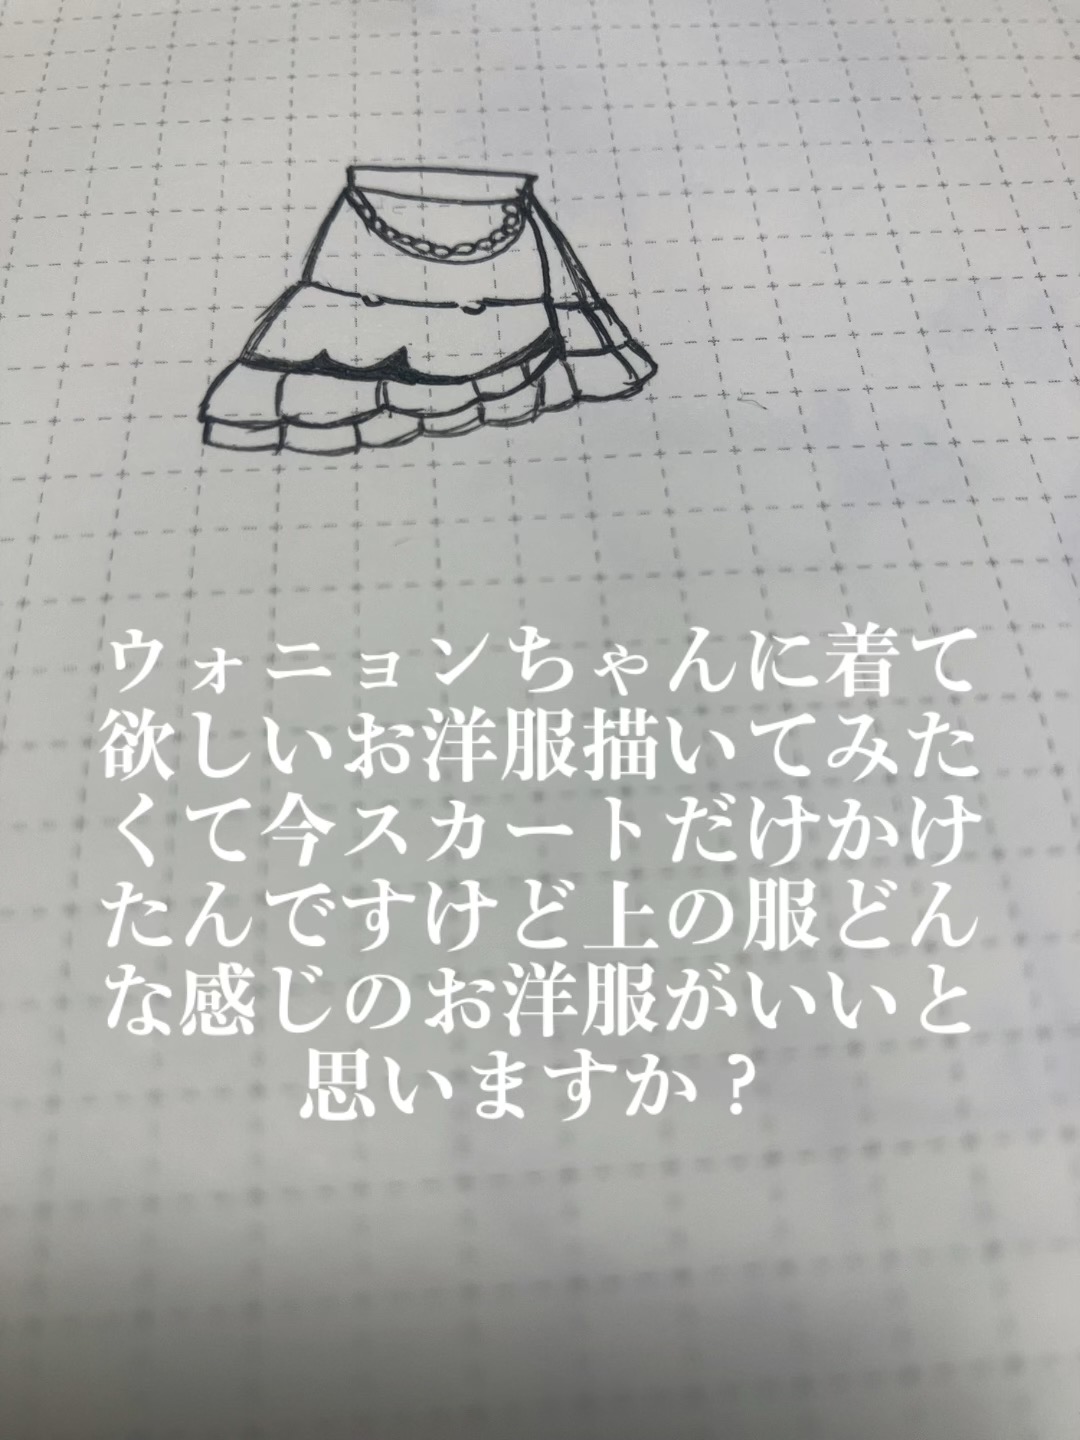 ウォニョンちゃんに着て
欲しいお洋服描いてみた
くて今スカートだけかけ
たんですけど上の服どん
な感じのお洋服がいいと
思いますか？